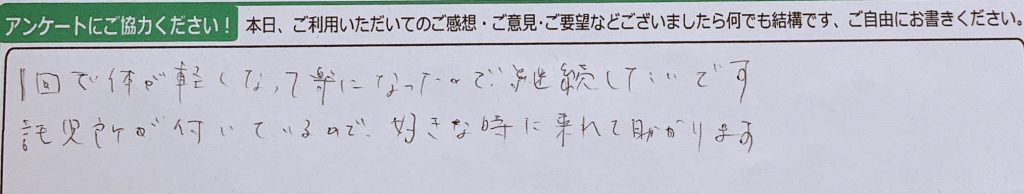 アンケートにご協力ください！ 本日、ご利用いただいてのご感想・ご意見・ご要望などございましたら何でも結構です、ご自由にお書きください。
1回で体が軽くなって楽になったので、継続したいです
託児所が付いているので、好きな時に来れて助かります